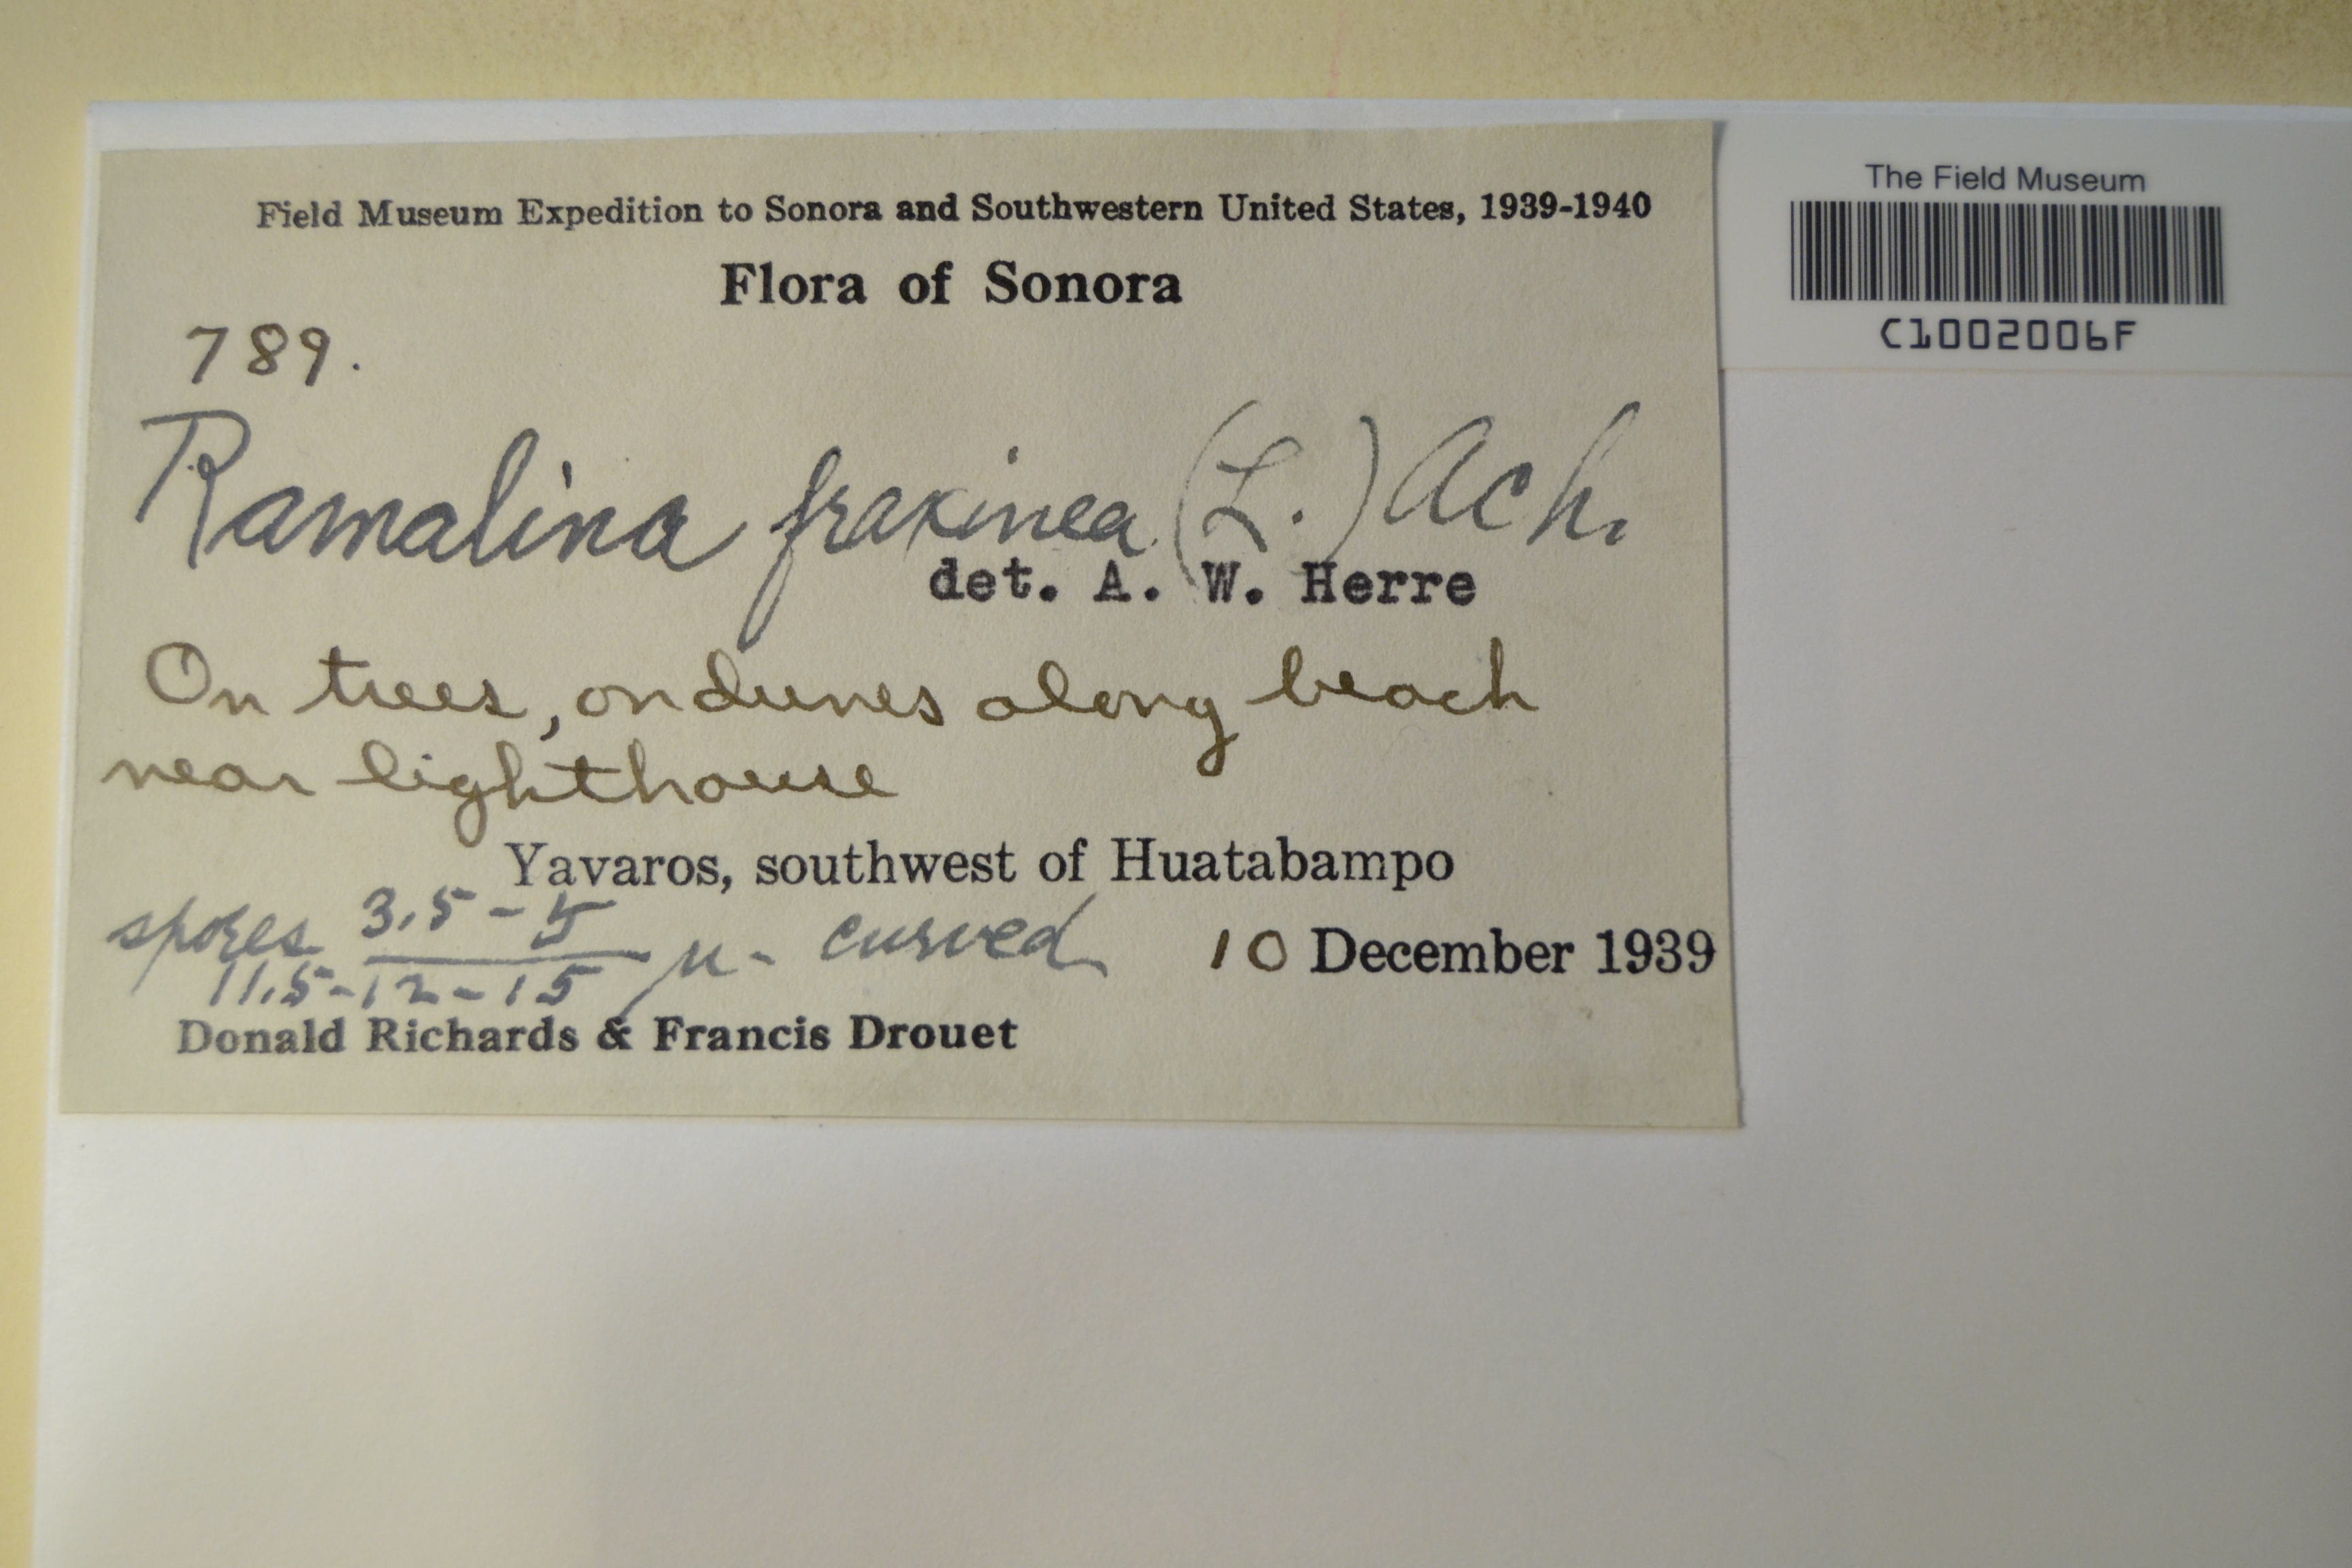 Field Museum Expedition to Sonora and Southwestern United States, 1939-1940
Flora of Sonora
789.
Ramalina fraxinea (L.) Ach.
det. A. W. Herre
On trees, on dunes along beach
near lighthouse
Yavaros, southwest of Huatabampo
spores 3.5-5
11.5-12-15 µ- curved
10 December 1939
Donald Richards & Francis Drouet
The Field Museum
C1002006F